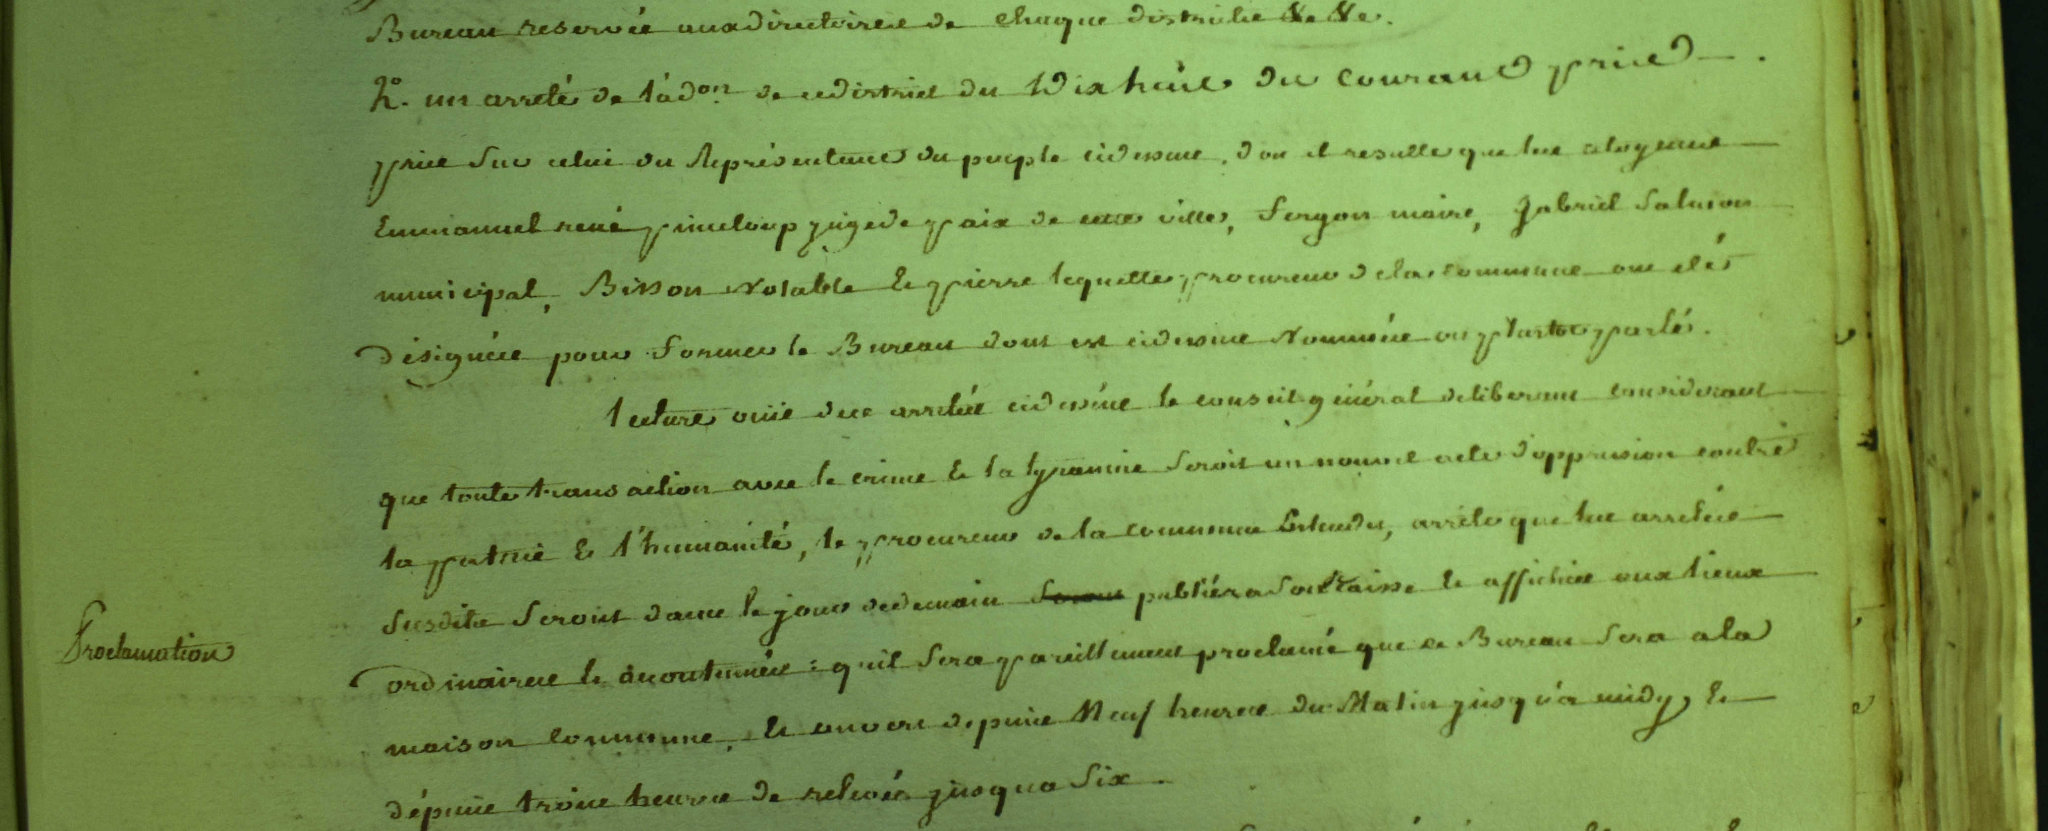 Bureau reservés aux directoires de chaque districte &c &c.
2°. un arreté de l'ad.on de ce district du dix huit du courant pris
pris sur celui du Représentant du peuple cidessus, d'ou il resulte que les citoyens
Emmanuel rené pineloup juge de paix de cette ville, Fergon maire, Gabriel Salmon
municipal, Bisson Notable & pierre lequette procureur de la commune ont étés
désignés pour former le Bureau dont est cidessus Nommée ou plustot parlé.
lecture ouïe des arrêtés cidessus le conseil général deliberant considerant
que toute transaction avec le crime & la tyrannie seroit un nouvel acte d'oppression contre
la patrie & l'humanité, le procureur de la commune Entendu, arrête que les arrêtés
susdits seront dans le jour de demain publiés a Son de Caisse & affichés aux lieux
ordinaires & accoutumés : qu'il sera pareillement proclamé que ce Bureau sera a la
Proclamation
maison commune, & ouvert depuis Neuf heures du Matin jusqu'a midy, &
dépuis trois heures de relevée jusqua Six.